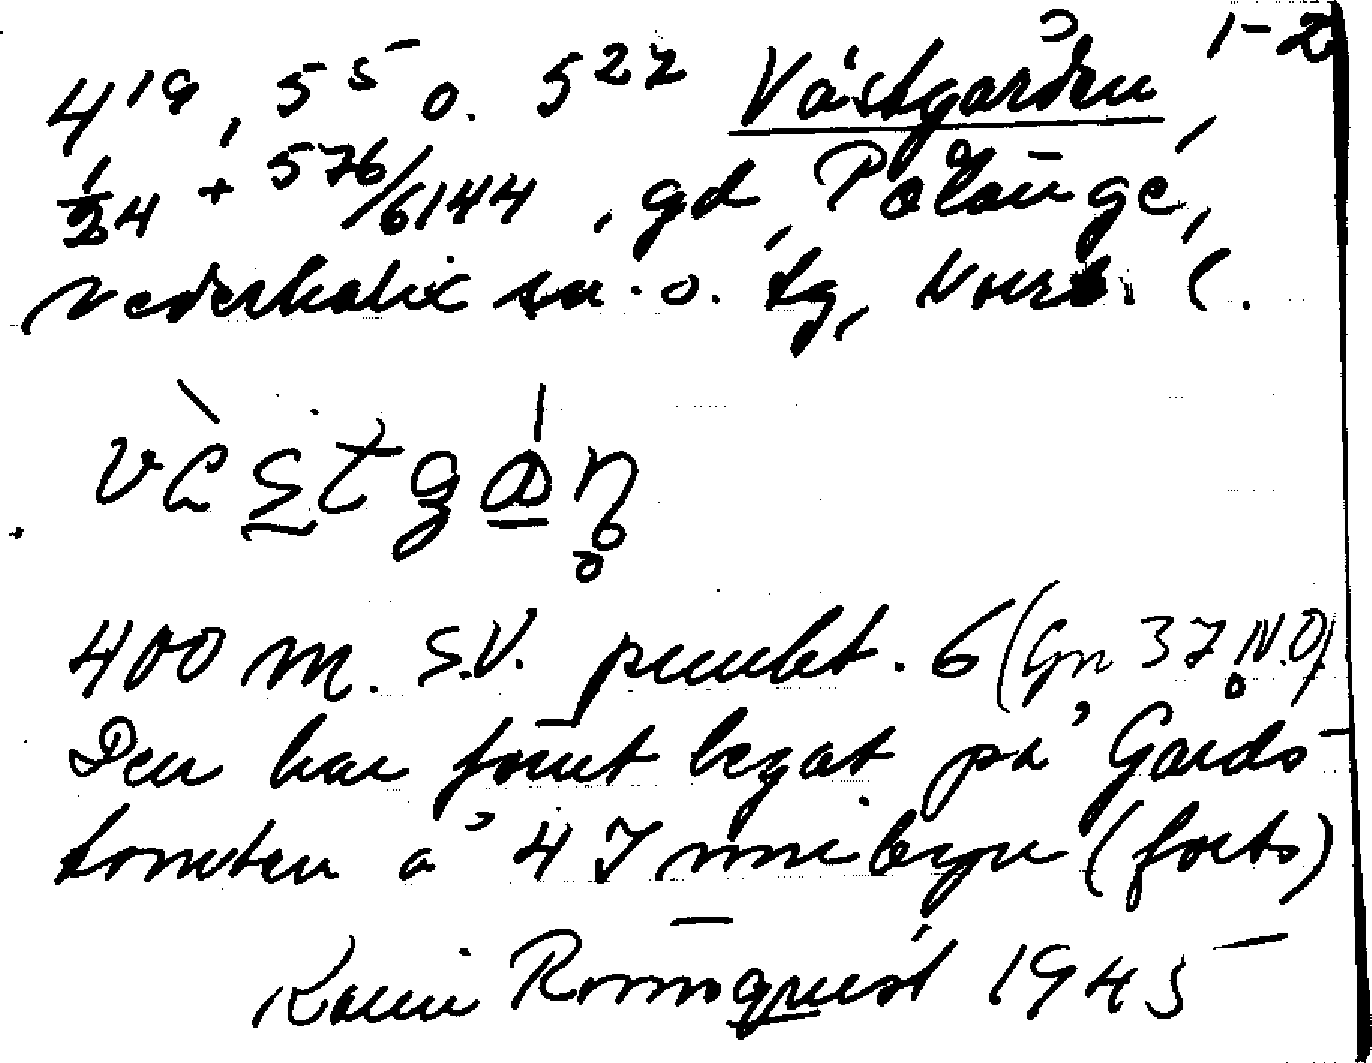 1-2
4¹⁹, 5⁵ o. 5²⁷ Västgården,
1/24 + 576/6144, gd, Pålänge,
Nederkalix sn. o. tg, Norrb. l.
vὲstgá̱ṇ
400 m. S.V. punkt. 6 (Gn 37 N.O)
Den har förut legat på Gårds-
tomten å 4 I nni byn (forts)
Karin Rönnquist 1945